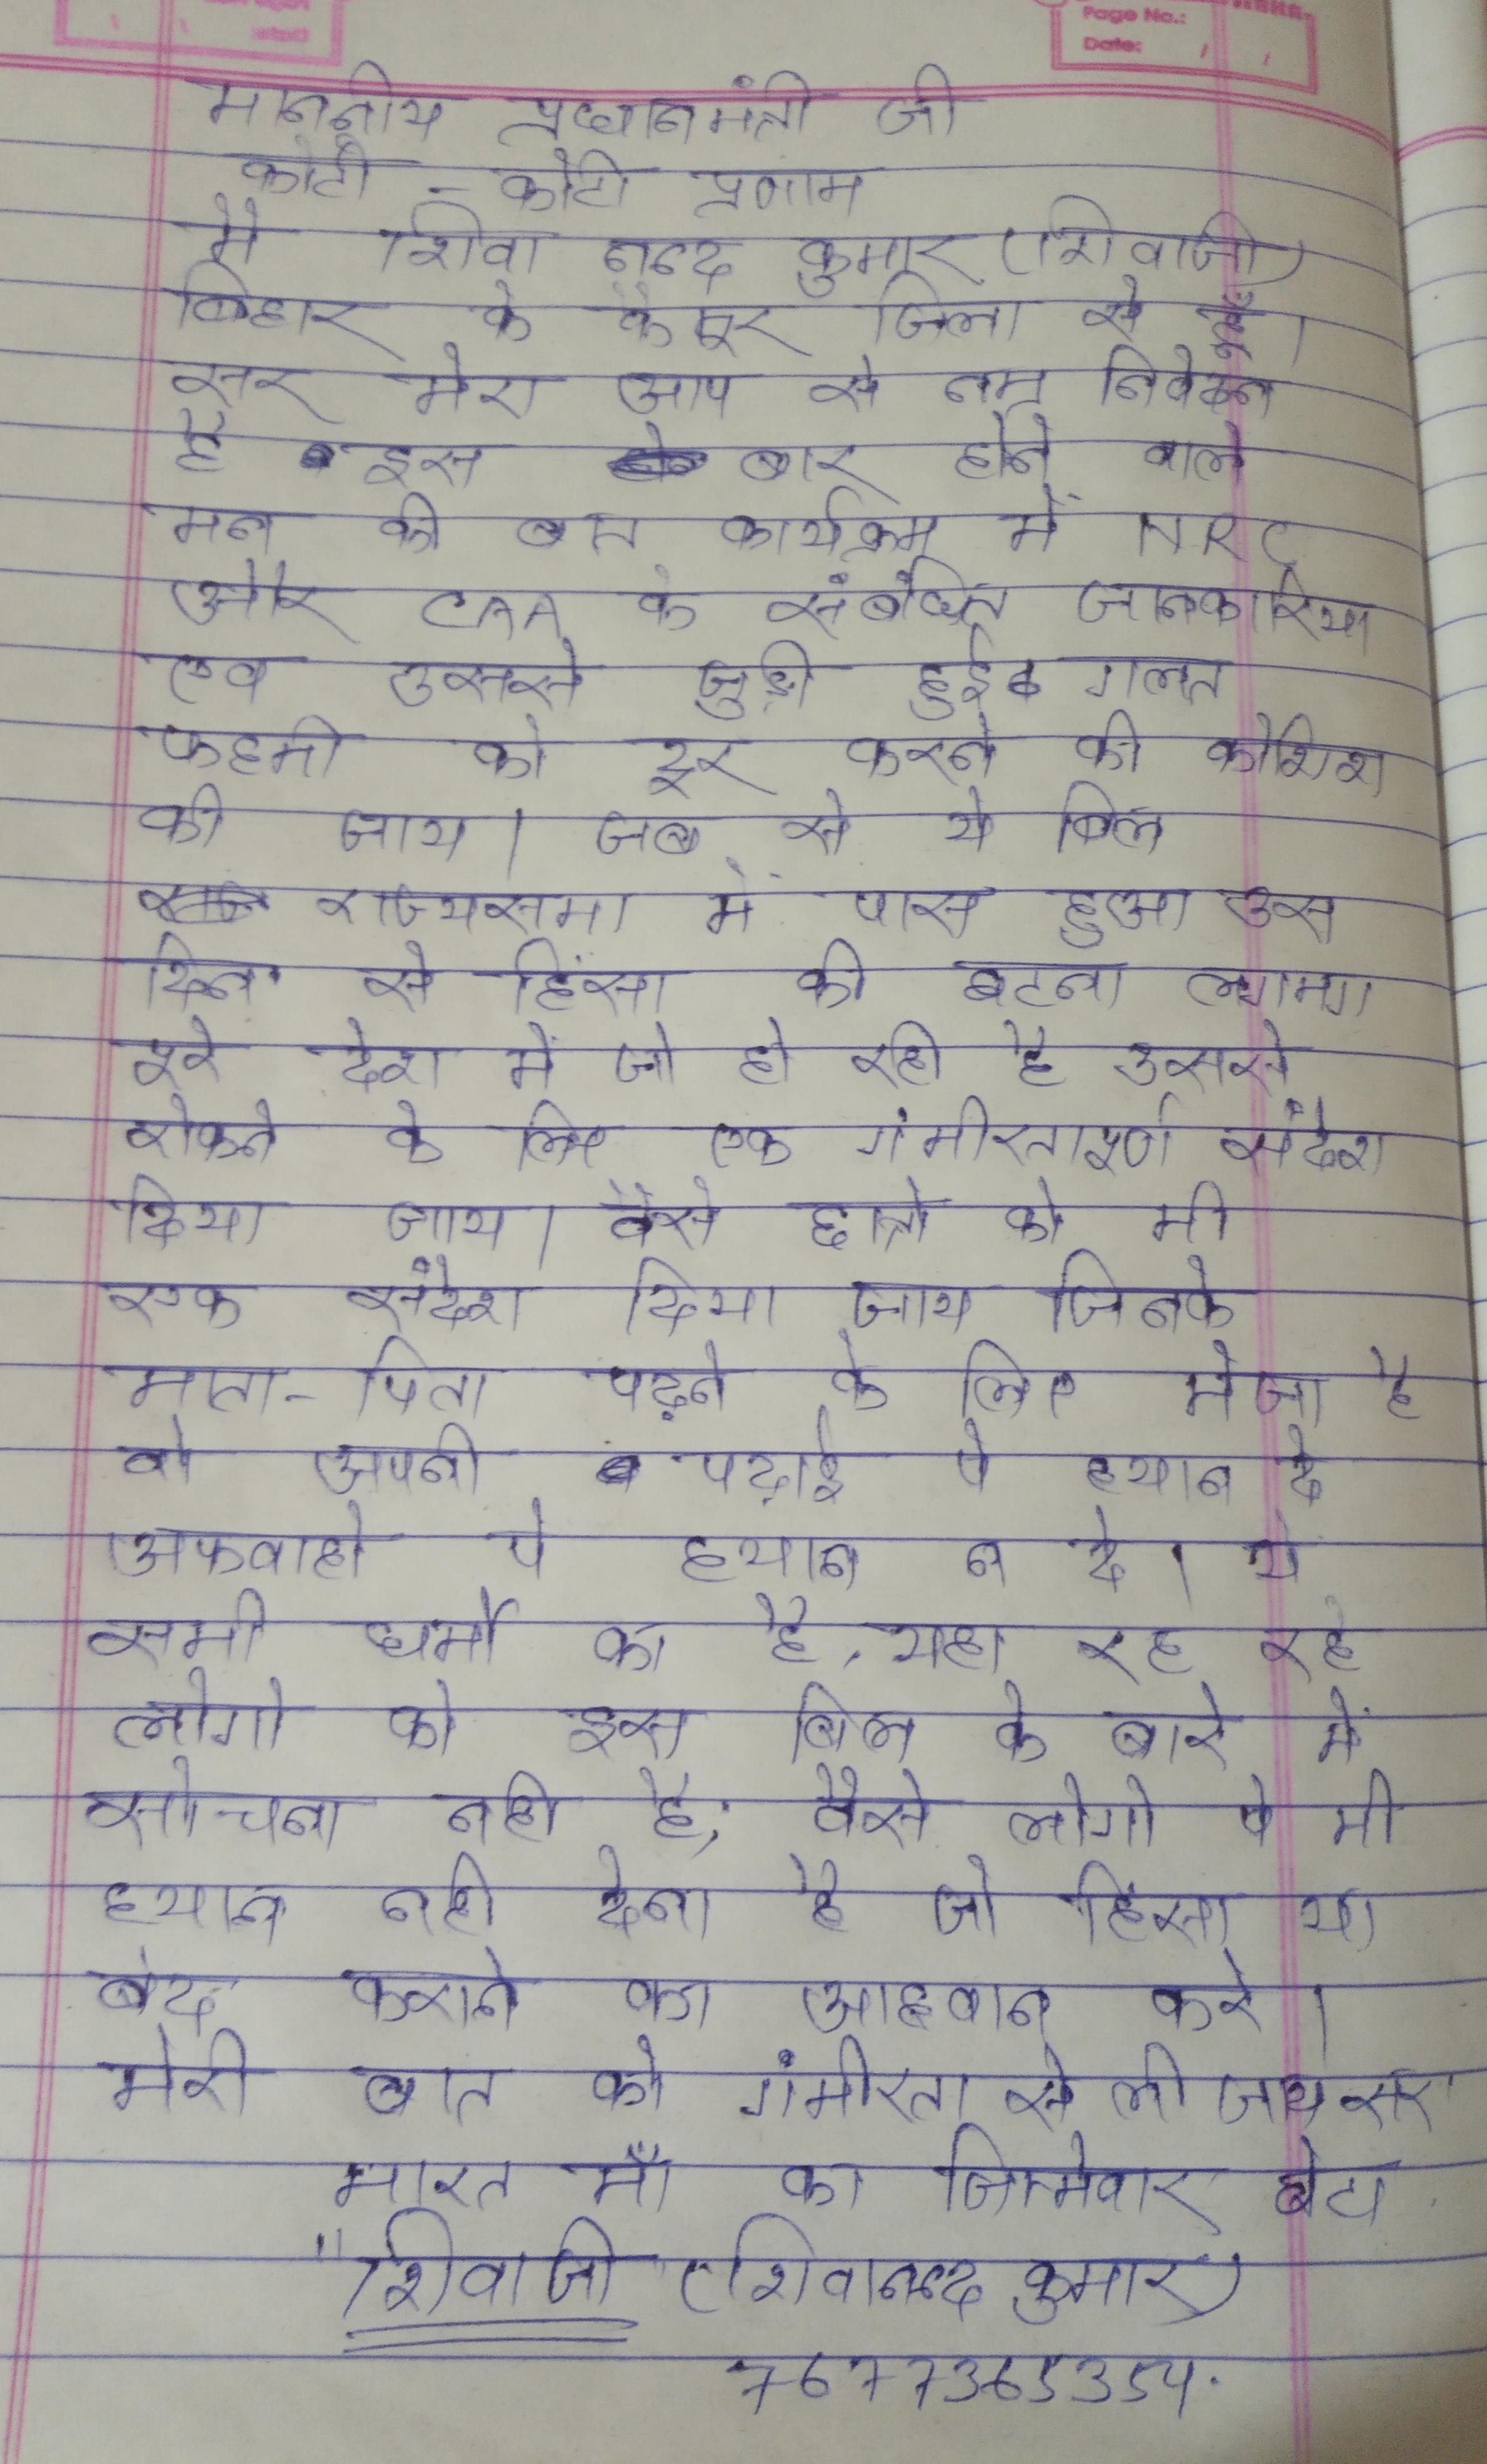 Page No.:
Date:
माननीय प्रधानमंत्री जी
कोटी - कोटी प्रणाम
मै शिवा नन्द कुमार (शिवाजी)
बिहार के कैमूर जिला से हूँ।
सर मेरा आप से नम्र निवेदन
है इस बार होने वाले
मन की बात कार्यक्रम में NRC
और CAA के संबंधित जानकारिया
एव उससे जुड़ी हुई गलत
फहमी को दूर करने की कोशिश
की जाय। जब से ये बिल
राज्यसभा में पास हुआ उस
दिन से हिंसा की घटना लगभग
पूरे देश में जो हो रही है उससे
रोकने के लिए एक गंभीरतापूर्ण संदेश
दिया जाय। वैसे छात्रो को भी
एक संदेश दिया जाय जिनके
माता - पिता पढ़ने के लिए भेजा है
वो अपनी पढ़ाई पे ध्यान दे
अफवाहो पे ध्यान न दे। ये
सभी धर्मो का है, यहा रह रहे
लोगो को इस बिल के बारे में
सोचना नही है, वैसे लोगो पे भी
ध्यान नही देना है जो हिंसा या
बंद कराने का आहवान करे।
मेरी बात को गंभीरता से ली जाय सर
भारत माँ का जिम्मेवार बेटा
"शिवाजी (शिवानन्द कुमार)
7677365354.